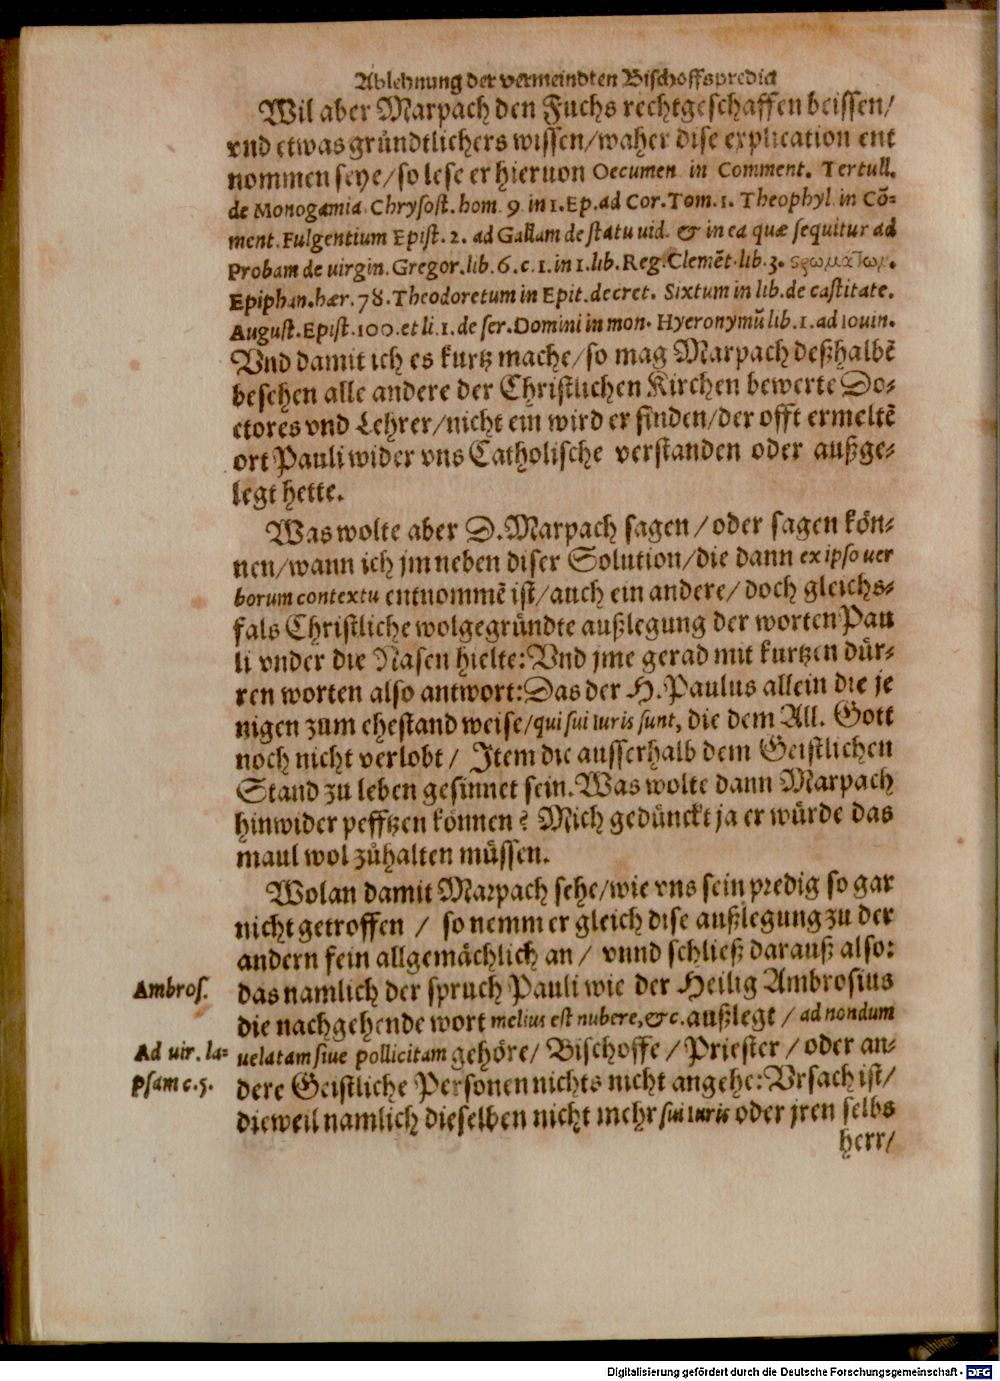 Ablehnung der vermeindten Bischoffspredig
Wil aber Marpach den Fuchs rechtgeschaffen beissen/
vnd etwas gründtlichers wissen/waher dise explication ent
nommen seye/so lese er hieruon Oecumen. in Comment. Tertull.
de Monogamia. Chrysost. hom. 9. in 1. Ep. ad Cor. Tom. 1. Theophyl. in Cõ-
ment. Fulgentium Epist. 2. ad Gallam de statu uid. & in ea quæ sequitur ad
Probam de uirgin. Gregor. lib. 6. c. 1. in 1. lib. Reg. Clemẽt. lib. 3.
Epiphan. hær. 78. Theodoretum in Epit. decret. Sixtum in lib. de castitate.
August. Epist. 100. et li. 1. de ser. Domini in mon. Hyeronymũ lib. 1. ad Iouin.
Vnd damit ich es kurtz mache/so mag Marpach deßhalbẽ
besehen alle andere der Christlichen Kirchen bewerte Do-
ctores vnd Lehrer/nicht ein wird er finden/der offt ermeltẽ
ort Pauli wider vns Catholische verstanden oder außge-
legt hette.
Was wolte aber D. Marpach sagen/oder sagen kön-
nen/wann ich jm neben diser Solution/die dann ex ipso uer
borum contextu entnommẽ ist/auch ein andere/doch gleichs-
fals Christliche wolgegründte außlegung der worten Pau
li vnder die Nasen hielte: Vnd jme gerad mit kurtzen dür-
ren worten also antwort: Das der H. Paulus allein die je
nigen zum ehestand weise/qui sui iuris sunt, die dem All. Gott
noch nicht verlobt/ Item die ausserhalb dem Geistlichen
Stand zu leben gesinnet sein. Was wolte dann Marpach
hinwider pefftzen können? Mich gedünckt ja er würde das
maul wol zůhalten müssen.
Wolan damit Marpach sehe/wie vns sein predig so gar
nicht getroffen / so nemm er gleich dise außlegung zu der
andern fein allgemächlich an / vnnd schließ darauß also:
Ambros. das namlich der spruch Pauli wie der Heilig Ambrosius
die nachgehende wort melius est nubere, &c. außlegt / ad nondum
Ad uir. la- uelatam siue pollicitam gehöre/ Bischoffe / Priester / oder an-
psam c. 5. dere Geistliche Personen nichts nicht angehe: Vrsach ist/
dieweil namlich dieselben nicht mehr sui iuris oder jren selbs
herr/
Digitalisierung gefördert durch die Deutsche Forschungsgemeinschaft - DFG